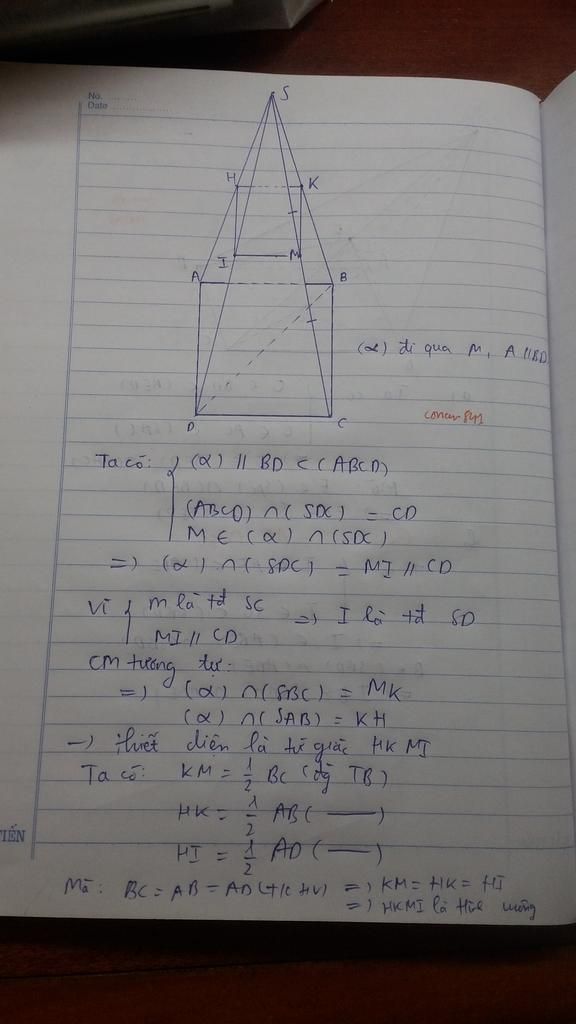 No. ........
Date ........
S
H K
I M
A B
(α) đi qua M, A // BD
D C
Ta có: { (α) // BD ⊂ (ABCD)
(ABCD) ∩ (SDC) = CD
M ∈ (α) ∩ (SDC)
=> (α) ∩ (SDC) = MI // CD
Vì { M là tđ SC => I là tđ SD
MI // CD
CM tương tự:
=> (α) ∩ (SBC) = MK
(α) ∩ (SAB) = KH
-> thiết diện là tứ giác HKMI
Ta có: KM = 1/2 BC (đg TB)
HK = 1/2 AB ( —— )
HI = 1/2 AD ( —— )
TIẾN
Mà: BC = AB = AD (t/c HV) => KM = HK = HI
=> HKMI là Hình vuông